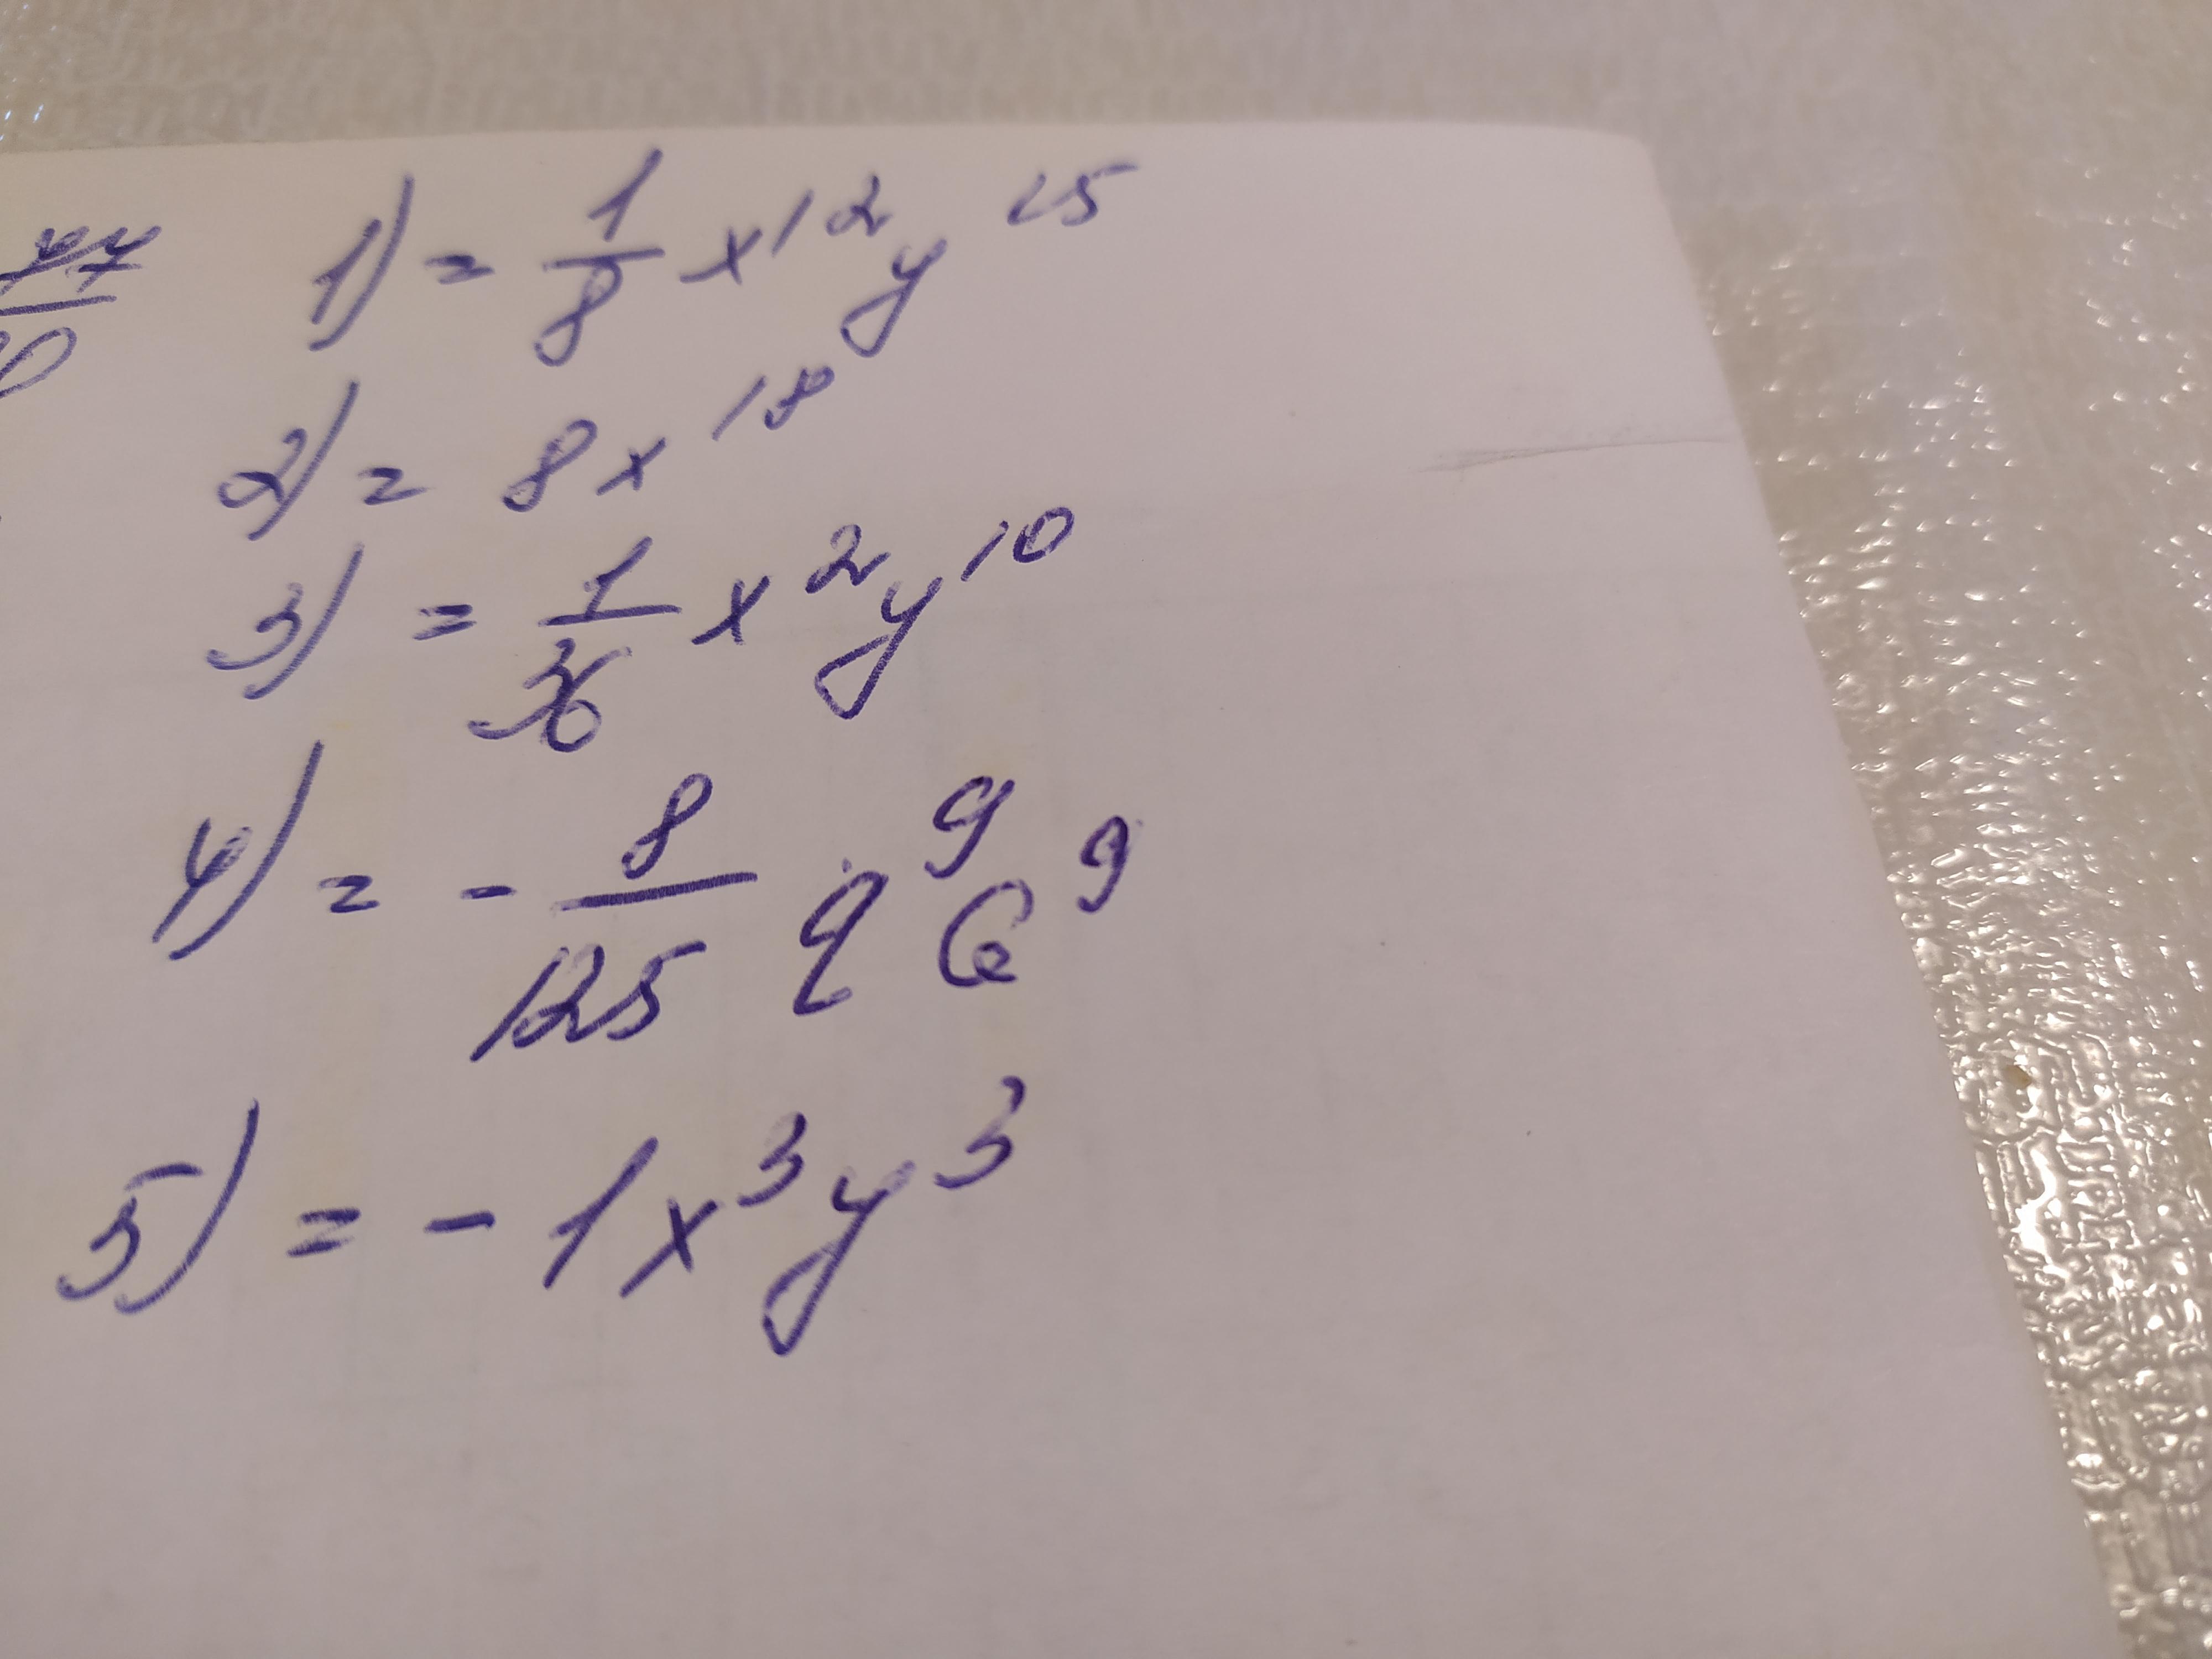 1) = 1/8 x^12 y^15
2) = 8x^18
3) = 1/36 x^2 y^10
4) = - 8/125 a^9 b^9
5) = - 1x^3 y^3